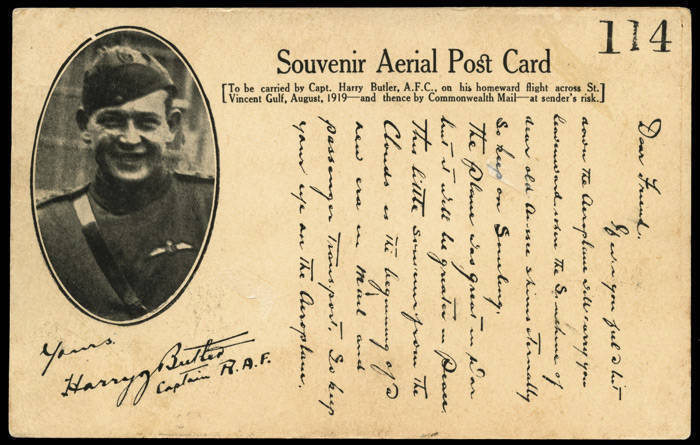 114
Souvenir Aerial Post Card
[To be carried by Capt. Harry Butler, A.F.C., on his homeward flight across St.
Vincent Gulf, August, 1919—and thence by Commonwealth Mail—at sender's risk.]
Dear Friend.
you feel a bit
down the Aeroplane will carry you
homeward when the Sunshine of
dear old Aussie shines Eternally
So keep on Smiling.
The Plane is Great in War
but it will be greater in Peace
This little Souvenir from the
Clouds is the begining of a
new era in Mail and
passenger Transport. So keep
your eye on the Aeroplane.
Yours.
Harry J Butler
Captain R.A.F.